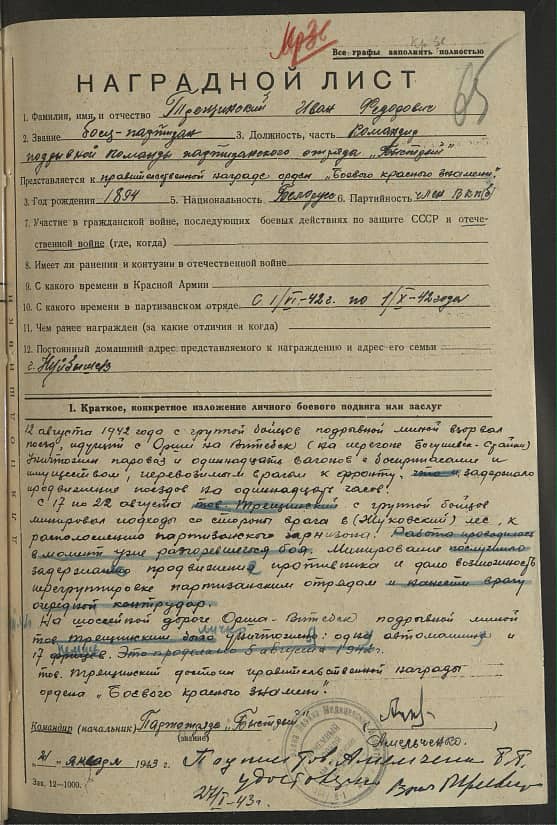 Все графы заполнять полностью
НАГРАДНОЙ ЛИСТ
65
1. Фамилия, имя и отчество Трещинский Иван Федорович
2. Звание боец-партизан 3. Должность, часть Командир
подрывной команды партизанского отряда „Быстрый"
Представляется к правительственной награде орден „Боевого красного знамени".
3. Год рождения 1894 5. Национальность Белорус 6. Партийность член ВКП(б)
7. Участие в гражданской войне, последующих боевых действиях по защите СССР и отече-
ственной войне (где, когда)
8. Имеет ли ранения и контузии в отечественной войне
9. С какого времени в Красной Армии
10. С какого времени в партизанском отряде. С 1/VI-42г. по 1/X-42 года
11. Чем ранее награжден (за какие отличия и когда)
12. Постоянный домашний адрес представляемого к награждению и адрес его семьи
г. Куйбышев
для подшивки
1. Краткое, конкретное изложение личного боевого подвига или заслуг
12 августа 1942 года с группой бойцов подрывной миной взорвал
поезд, идущий с Орши на Витебск (на перегоне Богушевск-
Уничтожил паровоз и одиннадцать вагонов с боеприпасами и
имуществом, перевозимым врагом к фронту, что и задержало
продвижение поездов на одиннадцать часов.
С 17 по 22 августа тов. Трещинский с группой бойцов
минировал подходы со стороны врага в (Жуковский) лес, к
расположению партизанского гарнизона. Работа проводилась
в момент уже разгоревшегося боя. Минирование послужило
продвижения противника и дало возможность
перегруппировке партизанским отрядам и нанести врагу
очередной контрудар.
На шоссейной дороге Орша-Витебск подрывной миной
тов. Трещинским была уничтожена одна автомашина и
17 фрицев. Это проделано 5 августа 1942г.
тов. Трещинский достоин правительственной награды
ордена „Боевого красного знамени".
Командир (начальник) Партотряда „Быстрый"
(звание)
Амельченко.
„21" января 1943 г. Подпись тов. Амельченко
удостоверяю
Зак. 12—1000.
27/I-43г.